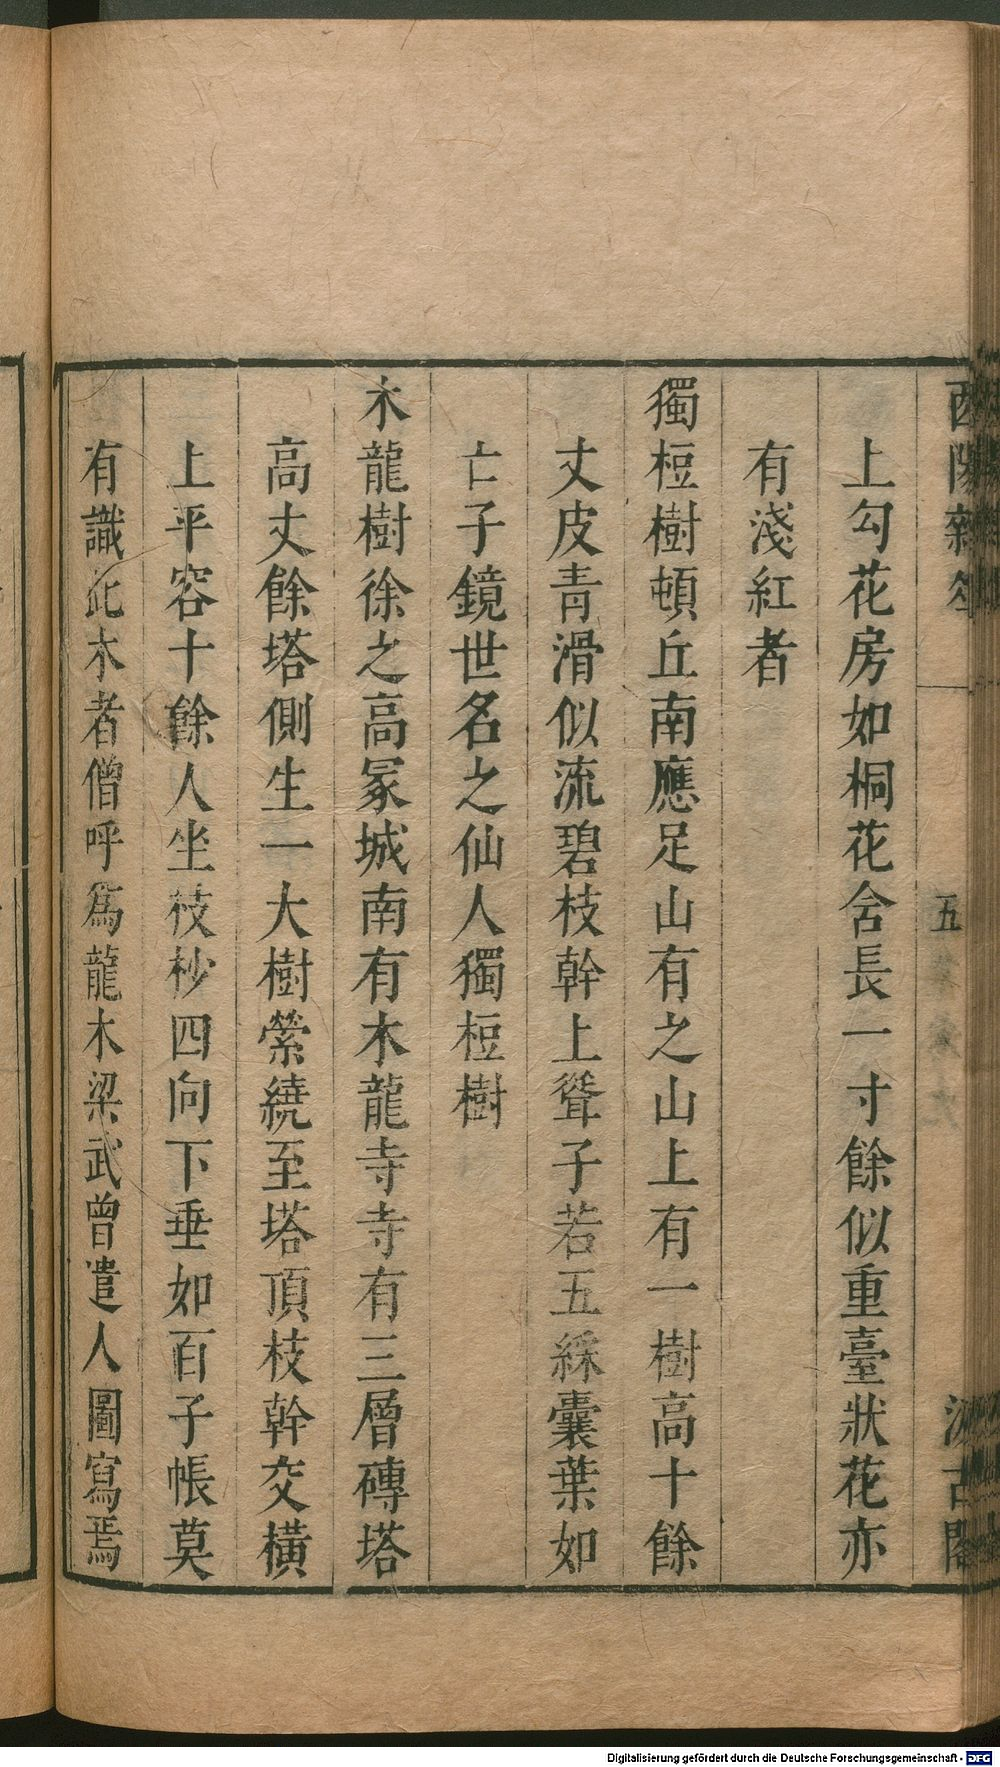 酉陽雜俎
五
汲古閣
上勾花房如桐花舍長一寸餘似重臺狀花亦
有淺紅者
獨梪樹頓丘南應足山有之山上有一樹高十餘
丈皮青滑似流碧枝幹上聳子若五綵囊葉如
亡子鏡世名之仙人獨梪樹
木龍樹徐之高冢城南有木龍寺寺有三層磚塔
高丈餘塔側生一大樹縈繞至塔頂枝幹交橫
上平容十餘人坐枝杪四向下垂如百子帳莫
有識此木者僧呼爲龍木梁武曾遣人圖寫焉
Digitalisierung gefördert durch die Deutsche Forschungsgemeinschaft - DFG